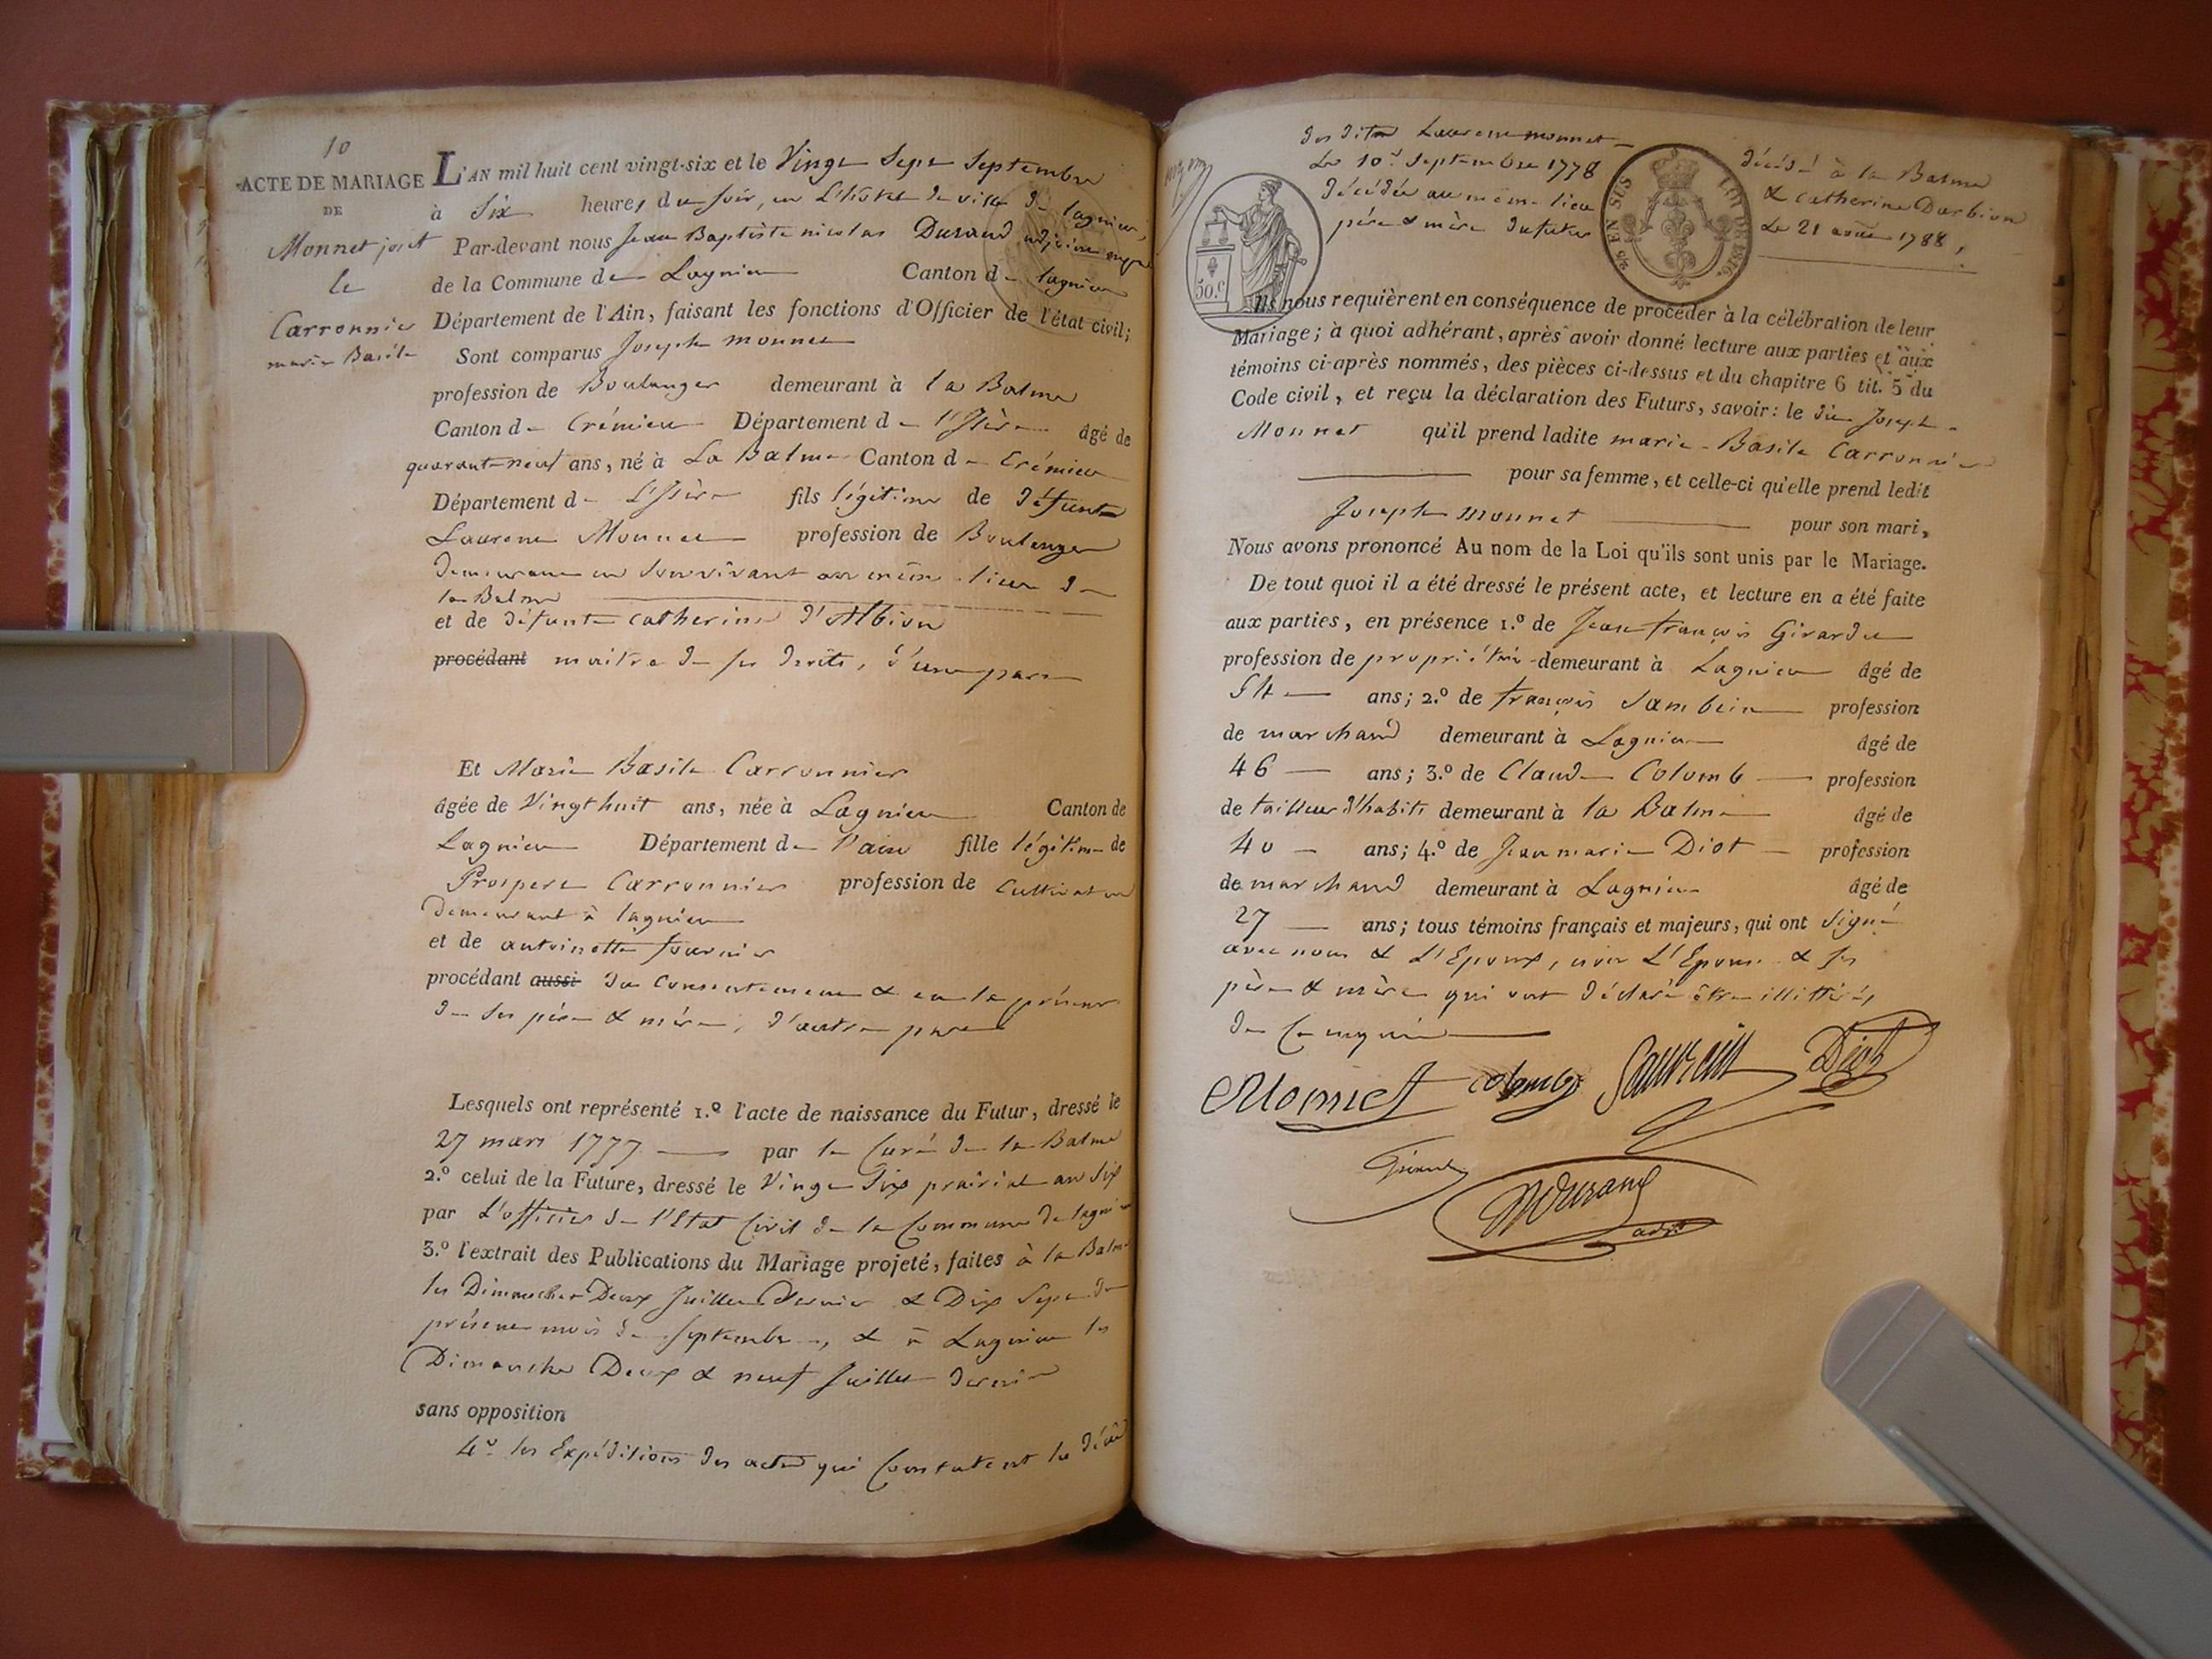 10
ACTE DE MARIAGE
DE
Monnet joset
le
Carronnier
marie Basile
L'AN mil huit cent vingt-six et le Vingt Sept Septembre
à Six heures du soir, en L'hôtel de ville de lagnieu,
Par-devant nous Jean Baptiste nicolas Durand adjoint
de la Commune de Lagnieu Canton de lagnieu
Département de l'Ain, faisant les fonctions d'Officier de l'état civil;
Sont comparus Joseph monnet
profession de Boulanger demeurant à la Balme
Canton de Crémieu Département de l'Isère âgé de
quarante neuf ans, né à La Balme Canton de Crémieu
Département de L'Isère fils légitime de défunt
Laurent Monnet profession de Boulanger
demeurant en son vivant au même lieu de
la Balme
et de défunte catherine d'Albion
procédant maitre de ses droits, d'une part
Et Marie Basile Carronnier
âgée de Vingt huit ans, née à Lagnieu Canton de
Lagnieu Département de l'ain fille légitime de
Prospere Carronnier profession de Cultivateur
demeurant à lagnieu
et de antoinette fournier
procédant aussi du Consentement & en la présence
de ses père & mère, d'autre part
Lesquels ont représenté 1.º l'acte de naissance du Futur, dressé le
27 mars 1777 par le Curé de la Balme
2.º celui de la Future, dressé le Vingt Six prairial an Six
par L'officier de l'Etat Civil de la Commune de lagnieu
3.º l'extrait des Publications du Mariage projeté, faites à la Balme
les Dimanches Deux Juillet Dernier & Dix Sept du
présent mois de Septembre, & à Lagnieu les
Dimanche Deux & neuf Juillet dernier
sans opposition
4º les Expéditions des actes qui Constatent le décès
des dits Laurent monnet
Le 10 Septembre 1778
décédée au même lieu
père & mère du futur
décédé à la Balme
& catherine Darbion
Le 21 août 1788,
50.C
EN SUS
LOI DE 1816.
Ils nous requièrent en conséquence de procéder à la célébration de leur
Mariage; à quoi adhérant, après avoir donné lecture aux parties et aux
témoins ci-après nommés, des pièces ci-dessus et du chapitre 6 tit. 5 du
Code civil, et reçu la déclaration des Futurs, savoir: le dit Joseph
Monnet qu'il prend ladite marie-Basile Carronnier
pour sa femme, et celle-ci qu'elle prend ledit
Joseph monnet pour son mari,
Nous avons prononcé Au nom de la Loi qu'ils sont unis par le Mariage.
De tout quoi il a été dressé le présent acte, et lecture en a été faite
aux parties, en présence 1.º de Jean françois Girardu
profession de propriétaire demeurant à Lagnieu âgé de
54 ans; 2.º de françois Sambein profession
de marchand demeurant à Lagnieu âgé de
46 ans; 3.º de Claude Colomb profession
de tailleur d'habits demeurant à la Balme âgé de
40 ans; 4.º de Jean marie Diot profession
de marchand demeurant à Lagnieu âgé de
27 ans; tous témoins français et majeurs, qui ont signé
avec nous & L'Epoux, non L'Epouse & ses
père & mère qui ont déclaré être illittérés,
de ce enquis
Monnet colomb Diot
Durand
adj.t